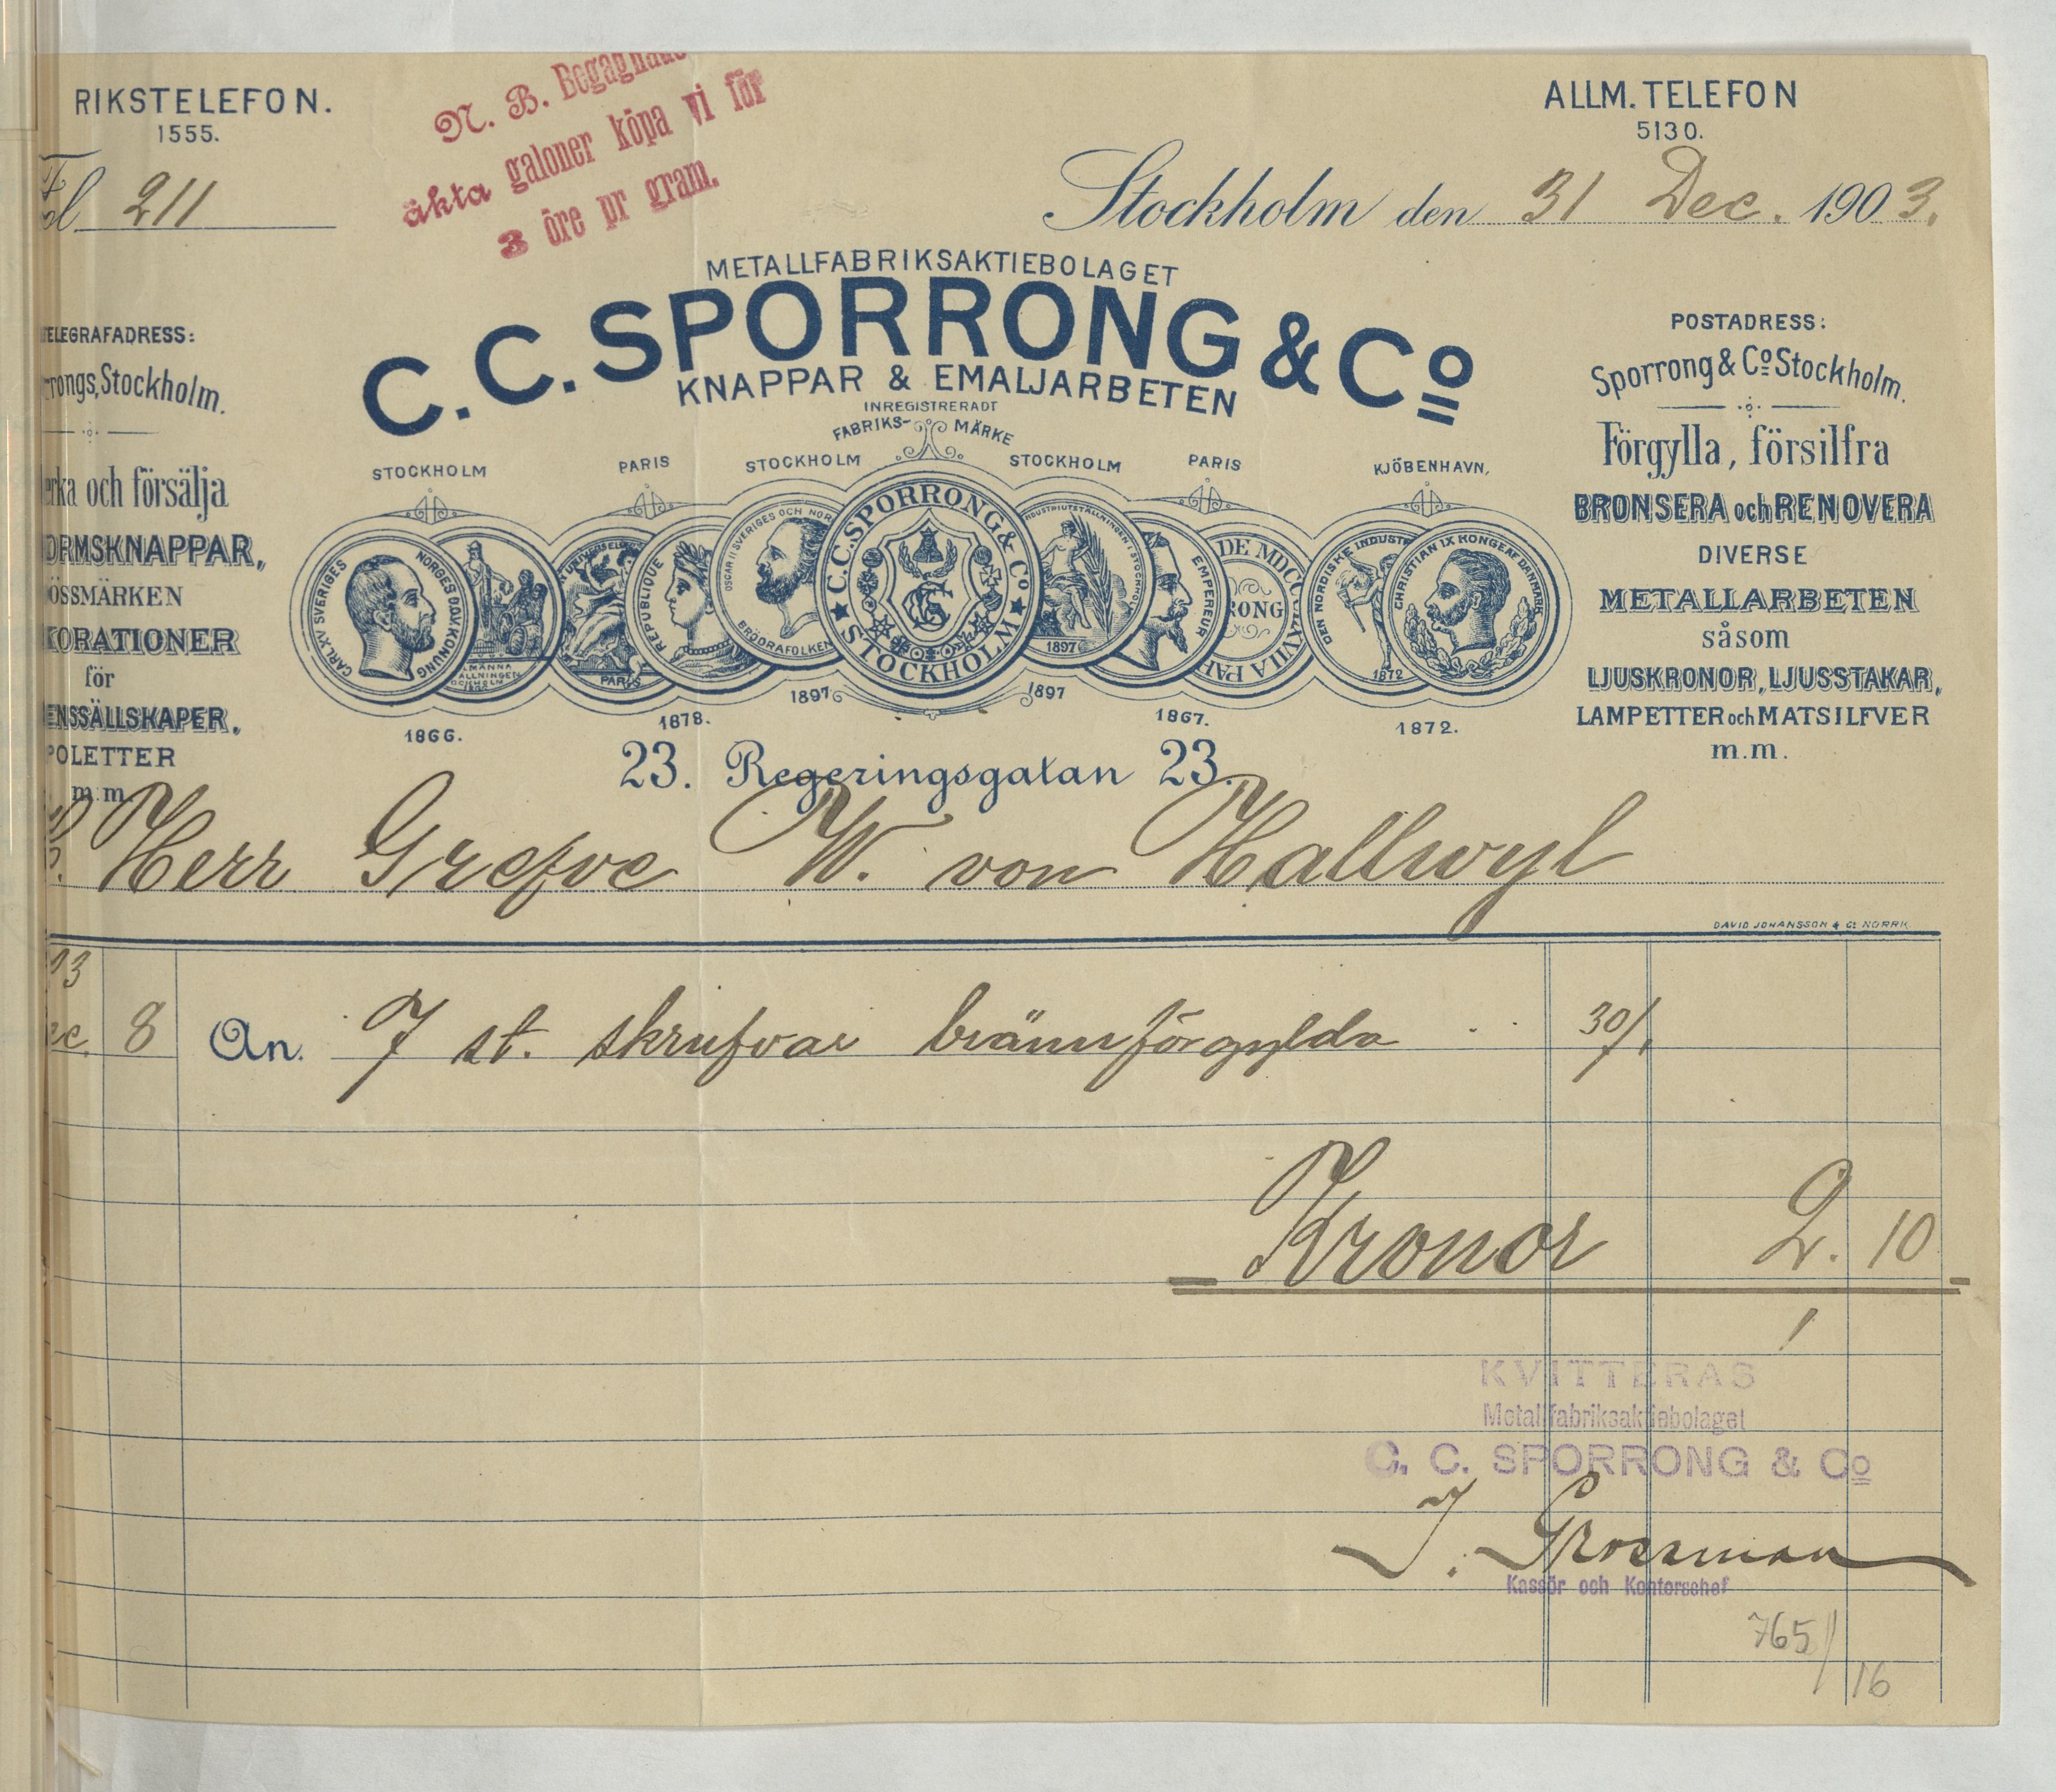 RIKSTELEFON.
1555.
Fol 211
N. B. Begagnade
äkta galoner köpa vi för
3 öre pr gram.
ALLM. TELEFON
5130.
Stockholm den 31 Dec. 1903.
METALLFABRIKSAKTIEBOLAGET
C. C. SPORRONG & Co
KNAPPAR & EMALJARBETEN
INREGISTRERADT
FABRIKS- MÄRKE
TELEGRAFADRESS:
rrongs, Stockholm.
erka och försälja
ORMSKNAPPAR,
ÖSSMÄRKEN
KORATIONER
för
ENSSÄLLSKAPER,
POLETTER
m.m.
STOCKHOLM
PARIS
STOCKHOLM
STOCKHOLM
PARIS
KJÖBENHAVN,
CARL XV SVERIGES NORGES O.V. KONUNG
LMÄNNA
ÄLLNINGEN
PARIS
REPUBLIQUE
OSCAR II SVERIGES OCH NOR
BRÖDRAFOLKEN
C.C. SPORRONG & Co
STOCKHOLM
INDUSTRIUTSTÄLLNINGEN I STOCKHOLM
1897
EMPEREUR
DE MDCC
RONG
DEN NORDISKE INDUSTR
1872
CHRISTIAN IX KONGE AF DANMARK
1866.
1878.
1897
1897
1867.
1872.
POSTADRESS:
Sporrong & Co Stockholm.
Förgylla, försilfra
BRONSERA och RENOVERA
DIVERSE
METALLARBETEN
såsom
LJUSKRONOR, LJUSSTAKAR,
LAMPETTER och MATSILFVER
m.m.
23. Regeringsgatan 23.
Herr Grefve W. von Hallwyl
DAVID JOHANSSON & Co NORRK.
03
ec. 8 An. 7 st. skrufvar brännförgylda 30/.
Kronor 2. 10
KVITTERAS
Metallfabriksaktiebolaget
C. C. SPORRONG & Co
Kassör och Kontorschef
765/
16